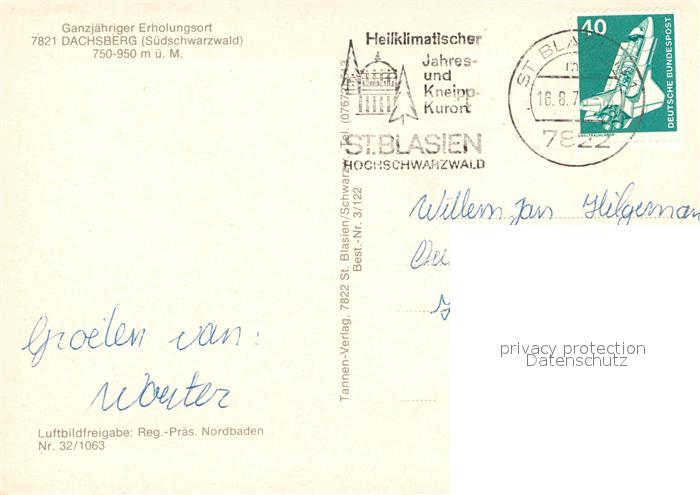 Ganzjähriger Erholungsort
7821 DACHSBERG (Südschwarzwald)
750-950 m ü. M.
Heilklimatischer
Jahres-
und
Kneipp-
Kurort
ST. BLASIEN
HOCHSCHWARZWALD
ST BLA
16.8.7
7822
40
DEUTSCHE BUNDESPOST
Tannen-Verlag, 7822 St. Blasien/Schwarzw. Tel. (07672)
Best.-Nr. 3/122
Willem Jan Hilgeman
privacy protection
Datenschutz
Groeten van:
Wouter
Luftbildfreigabe: Reg.-Präs. Nordbaden
Nr. 32/1063